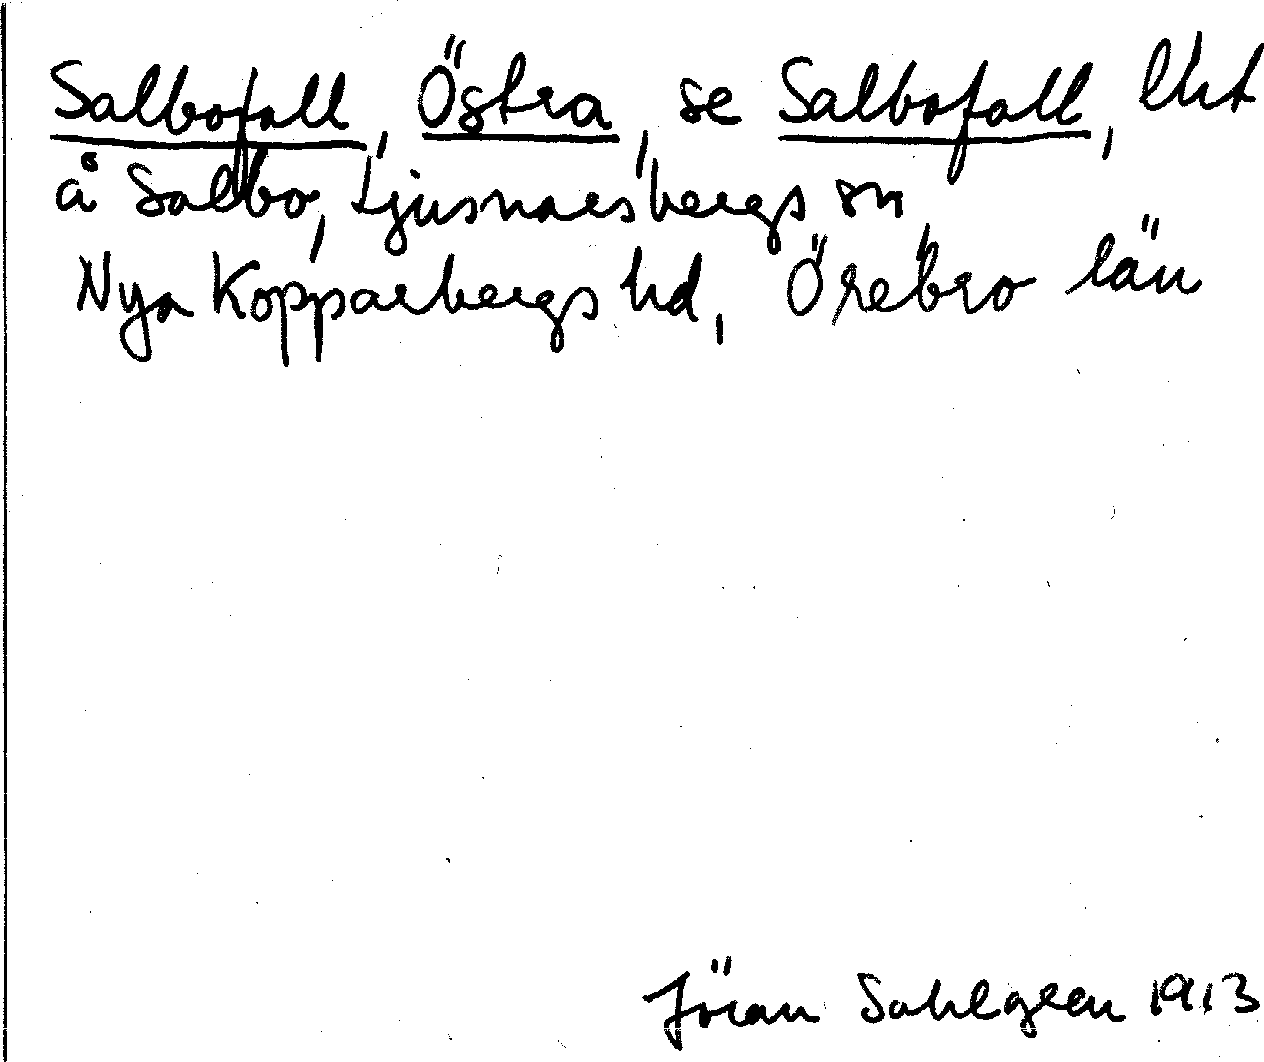 Salbofall, Östra, se Salbofall, lht
å Salbo, Ljusnarsbergs sn
Nya Kopparbergs hd, Örebro län
Jöran Sahlgren 1913